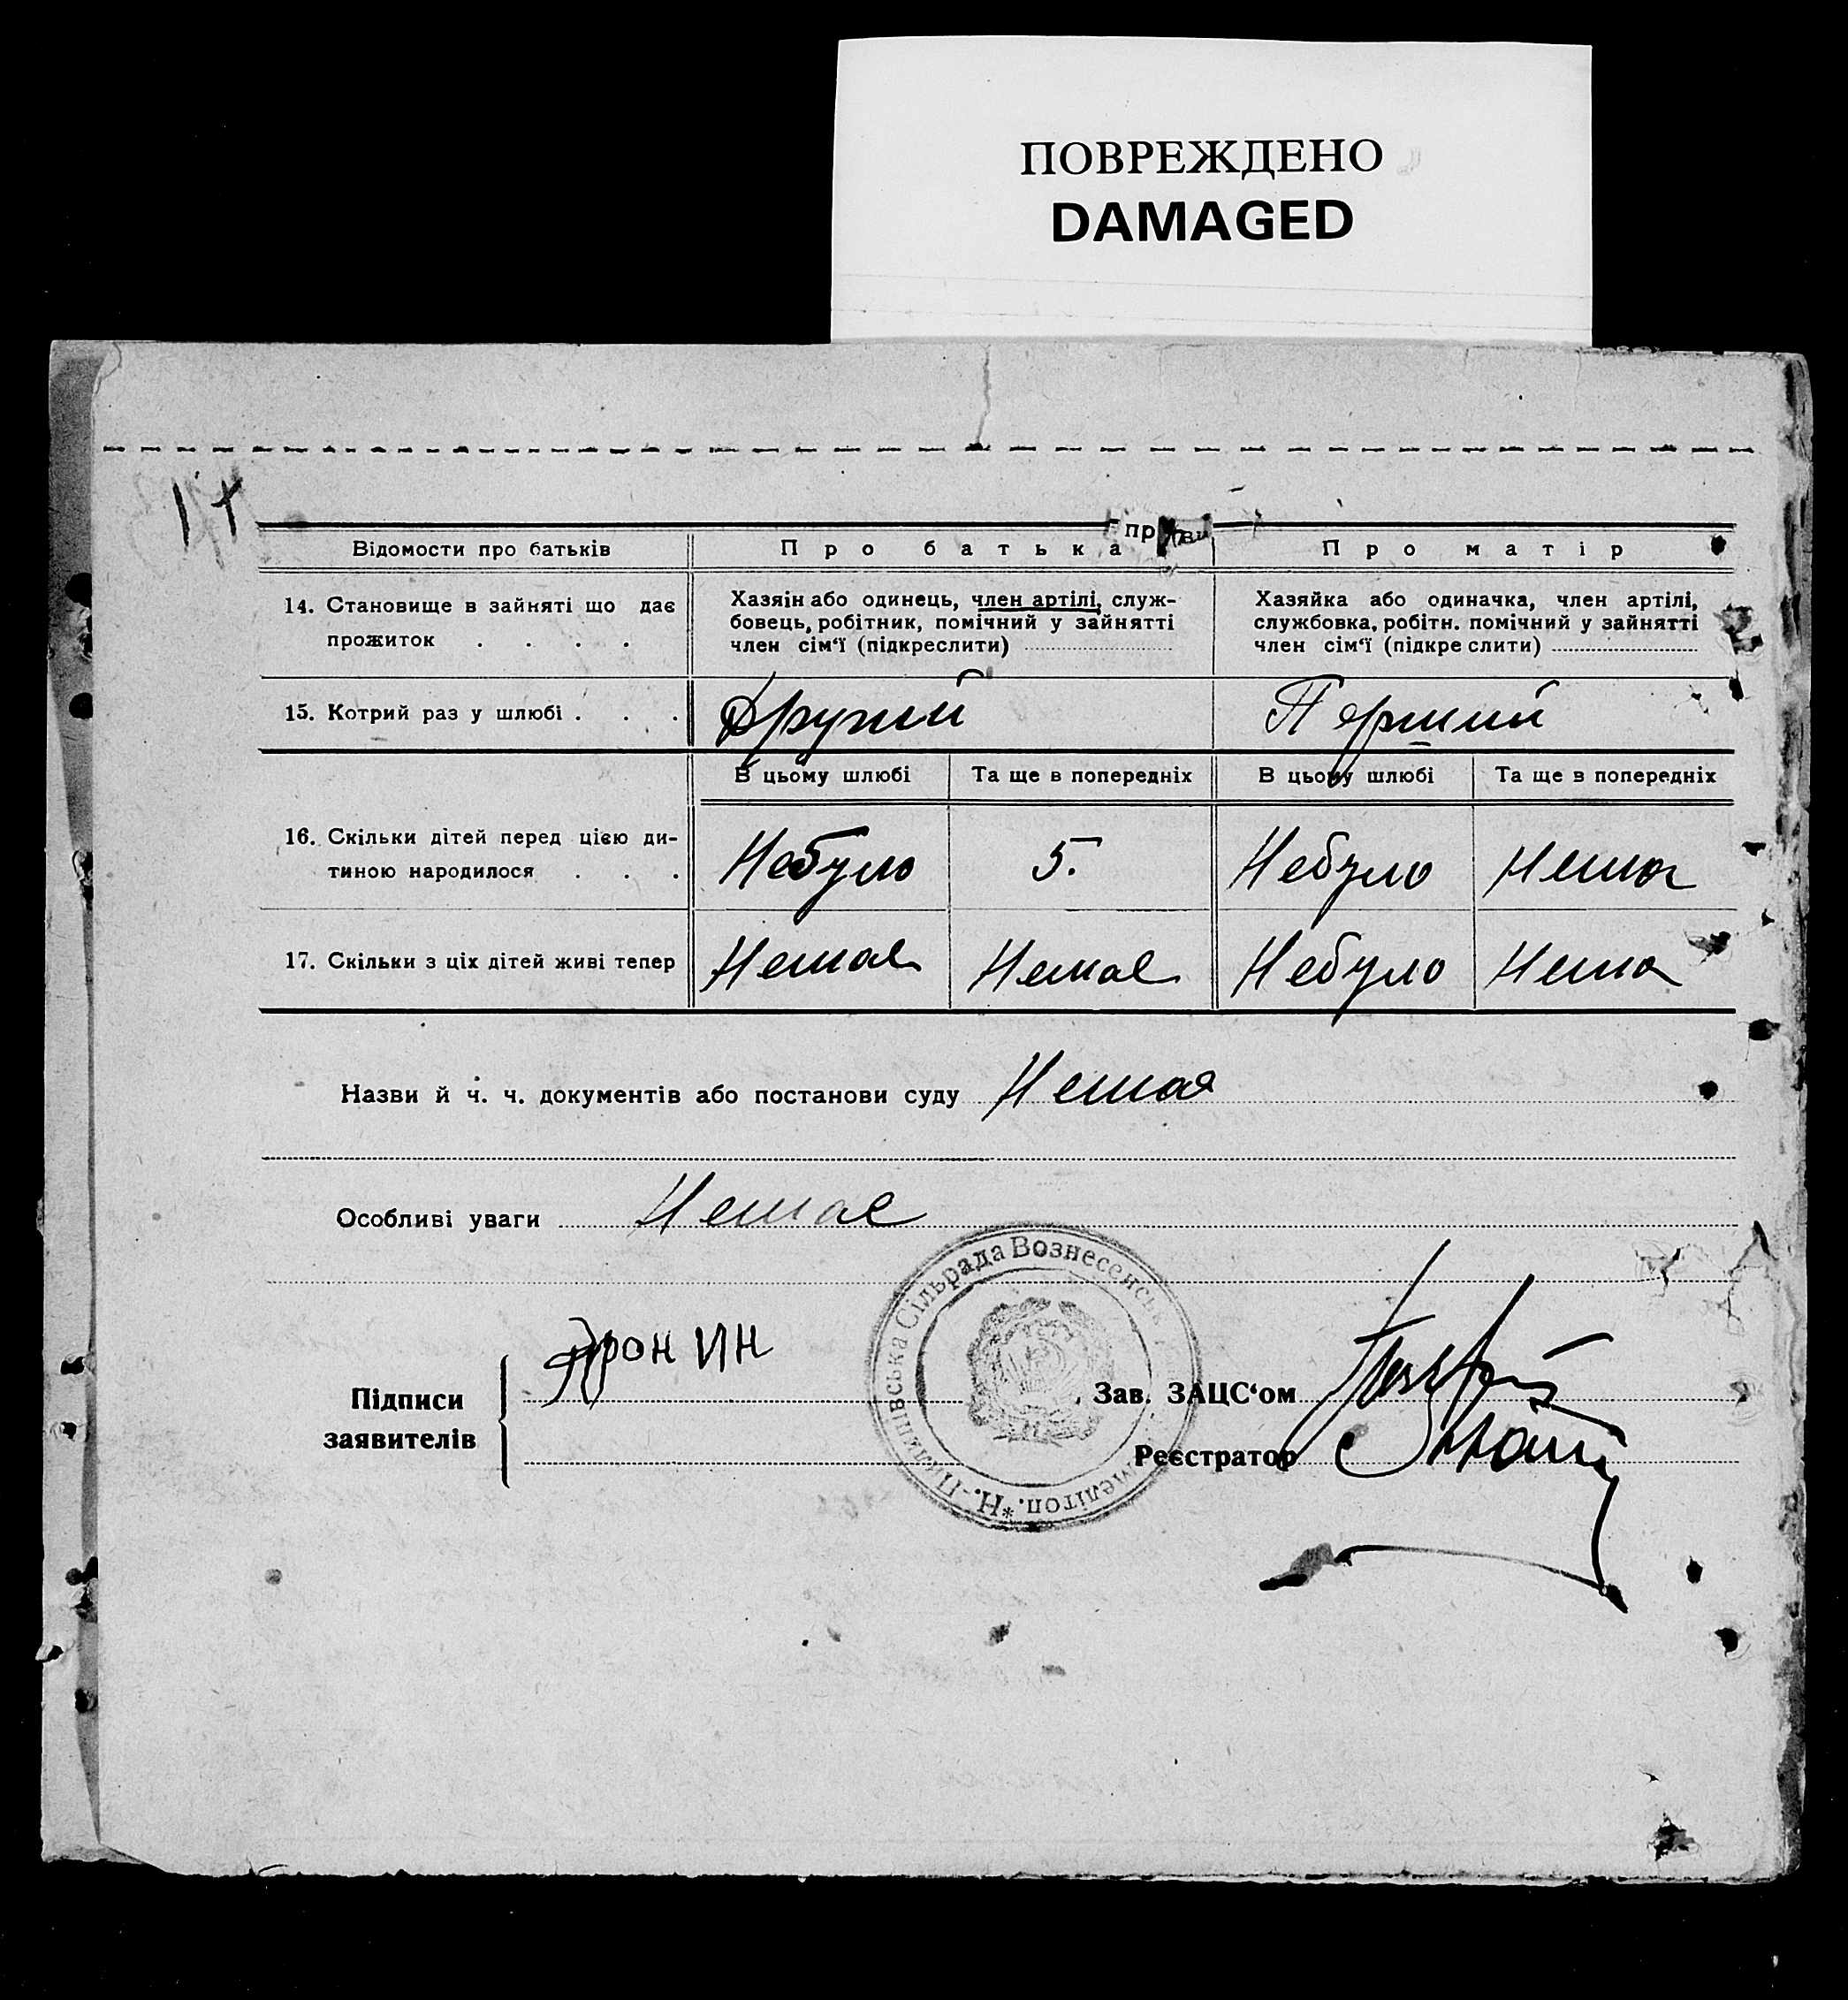 ПОВРЕЖДЕНО
DAMAGED
17
Відомости про батьків
Про батька
Про матір
14. Становище в зайняті що дає
прожиток . . . .
Хазяін або одинець, член артілі, служ-
бовець, робітник, помічний у зайнятті
член сім‘ї (підкреслити)
Хазяйка або одиначка, член артілі,
службовка, робітн. помічний у зайнятті
член сім‘ї (підкреслити)
15. Котрий раз у шлюбі . . .
Другий
Перший
В цьому шлюбі
Та ще в попередніх
В цьому шлюбі
Та ще в попередніх
16. Скільки дітей перед цією ди-
тиною народилося . . .
Небуло
5.
Небуло
Нема
17. Скільки з ціх дітей живі тепер
Немає
Немає
Небуло
Нема
Назви й ч. ч. документів або постанови суду Немає
Особливі уваги Немає
Підписи
заявителів
Дронин
Н.-Пилипівська Сільрада Вознесенськ Мелітоп. *
Зав. ЗАЦС‘ом
Реєстратор